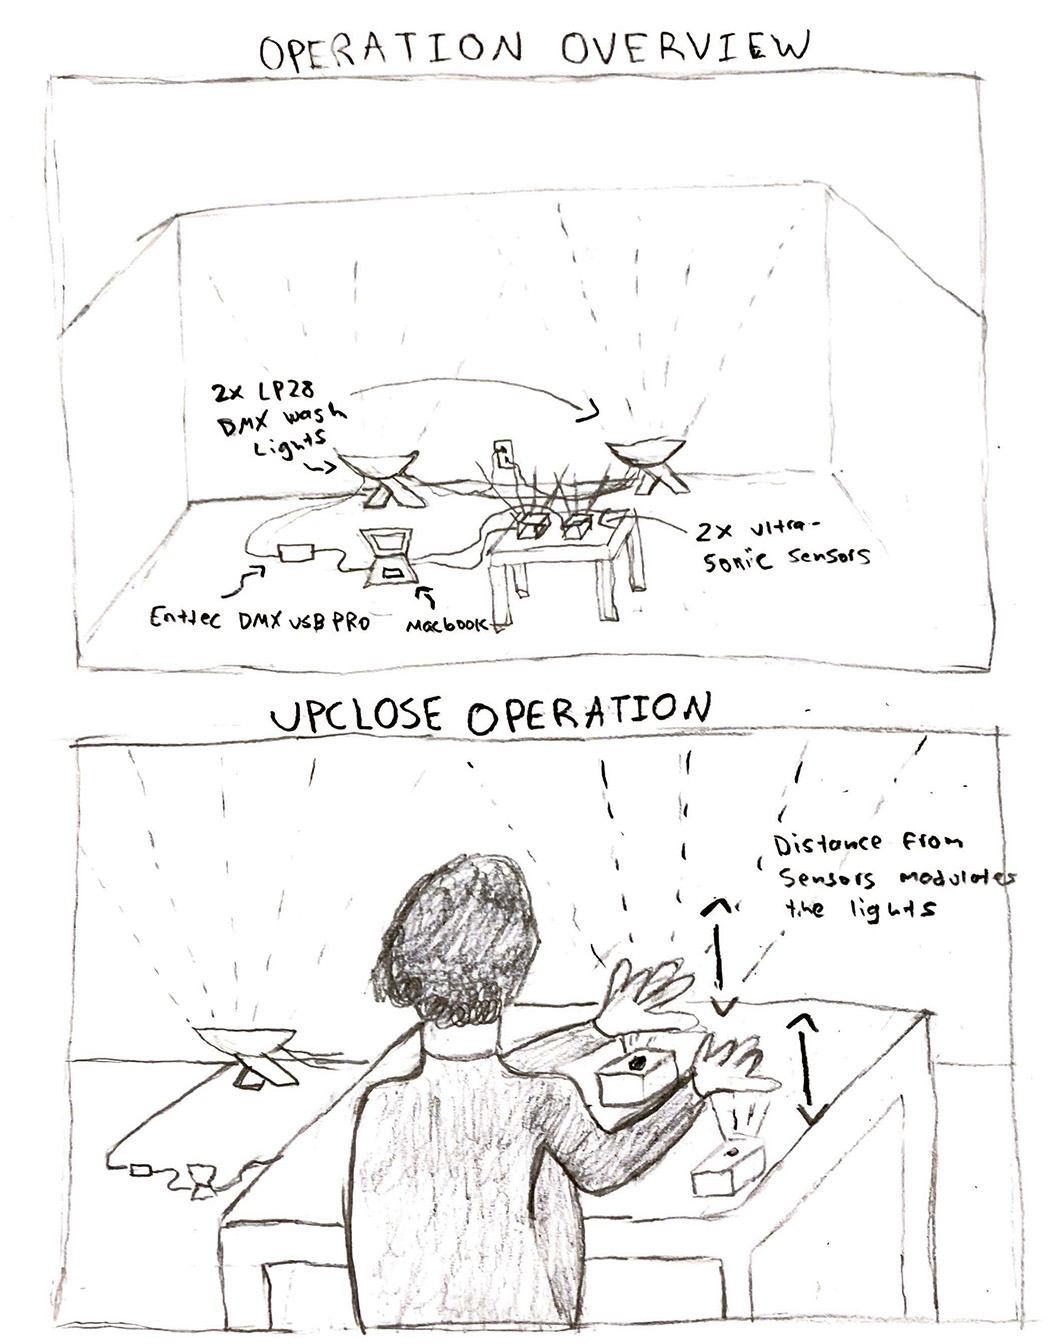 OPERATION OVERVIEW
2x LP28
DMX wash
Lights
2x Ultra-
Sonic Sensors
Enttec DMX USB PRO
Macbook
UPCLOSE OPERATION
Distance from
Sensors modulates
the lights